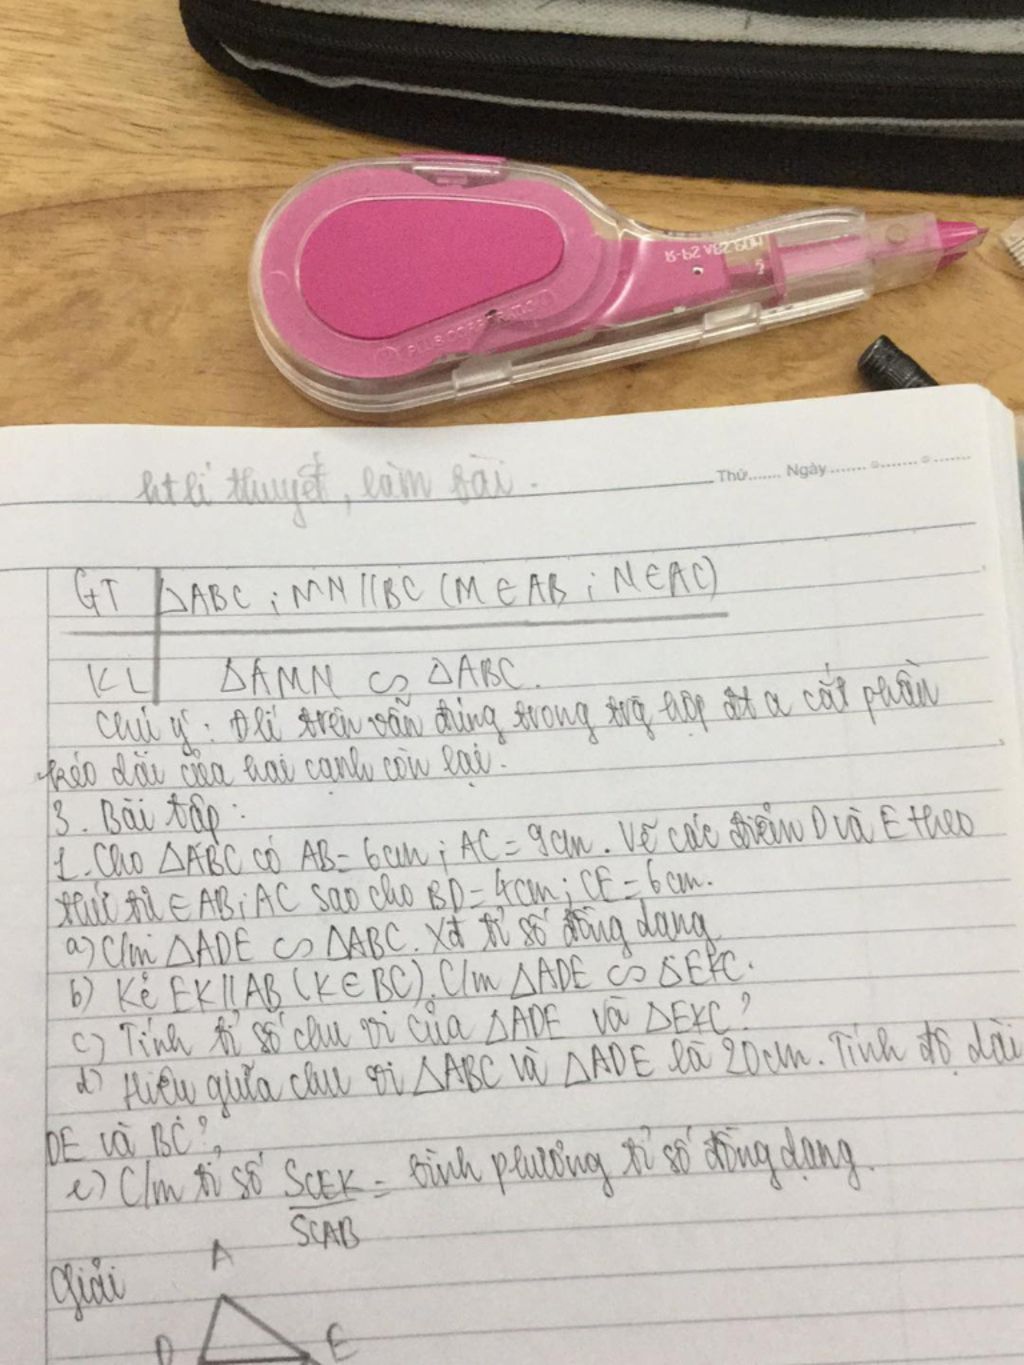 ht lí thuyết, làm bài.
Thứ....... Ngày
GT ΔABC ; MN // BC (M ∈ AB ; N ∈ AC)
KL ΔAMN ∽ ΔABC.
Chú ý: Đlí trên vẫn đúng trong trg hợp đt a cắt phần
kéo dài của hai cạnh còn lại.
3. Bài tập:
1. Cho ΔABC có AB = 6cm ; AC = 9cm. Vẽ các điểm D và E theo
thứ tự ∈ AB ; AC sao cho BD = 4cm ; CE = 6cm.
a) C/m ΔADE ∽ ΔABC. Xđ tỉ số đồng dạng
b) Kẻ EK // AB (K ∈ BC). C/m ΔADE ∽ ΔEKC.
c) Tính tỉ số chu vi của ΔADE và ΔEKC?
d) Hiệu giữa chu vi ΔABC và ΔADE là 20cm. Tính độ dài
DE và BC?
e) C/m tỉ số SCEK = bình phương tỉ số đồng dạng.
SCAB
Giải
A
D E